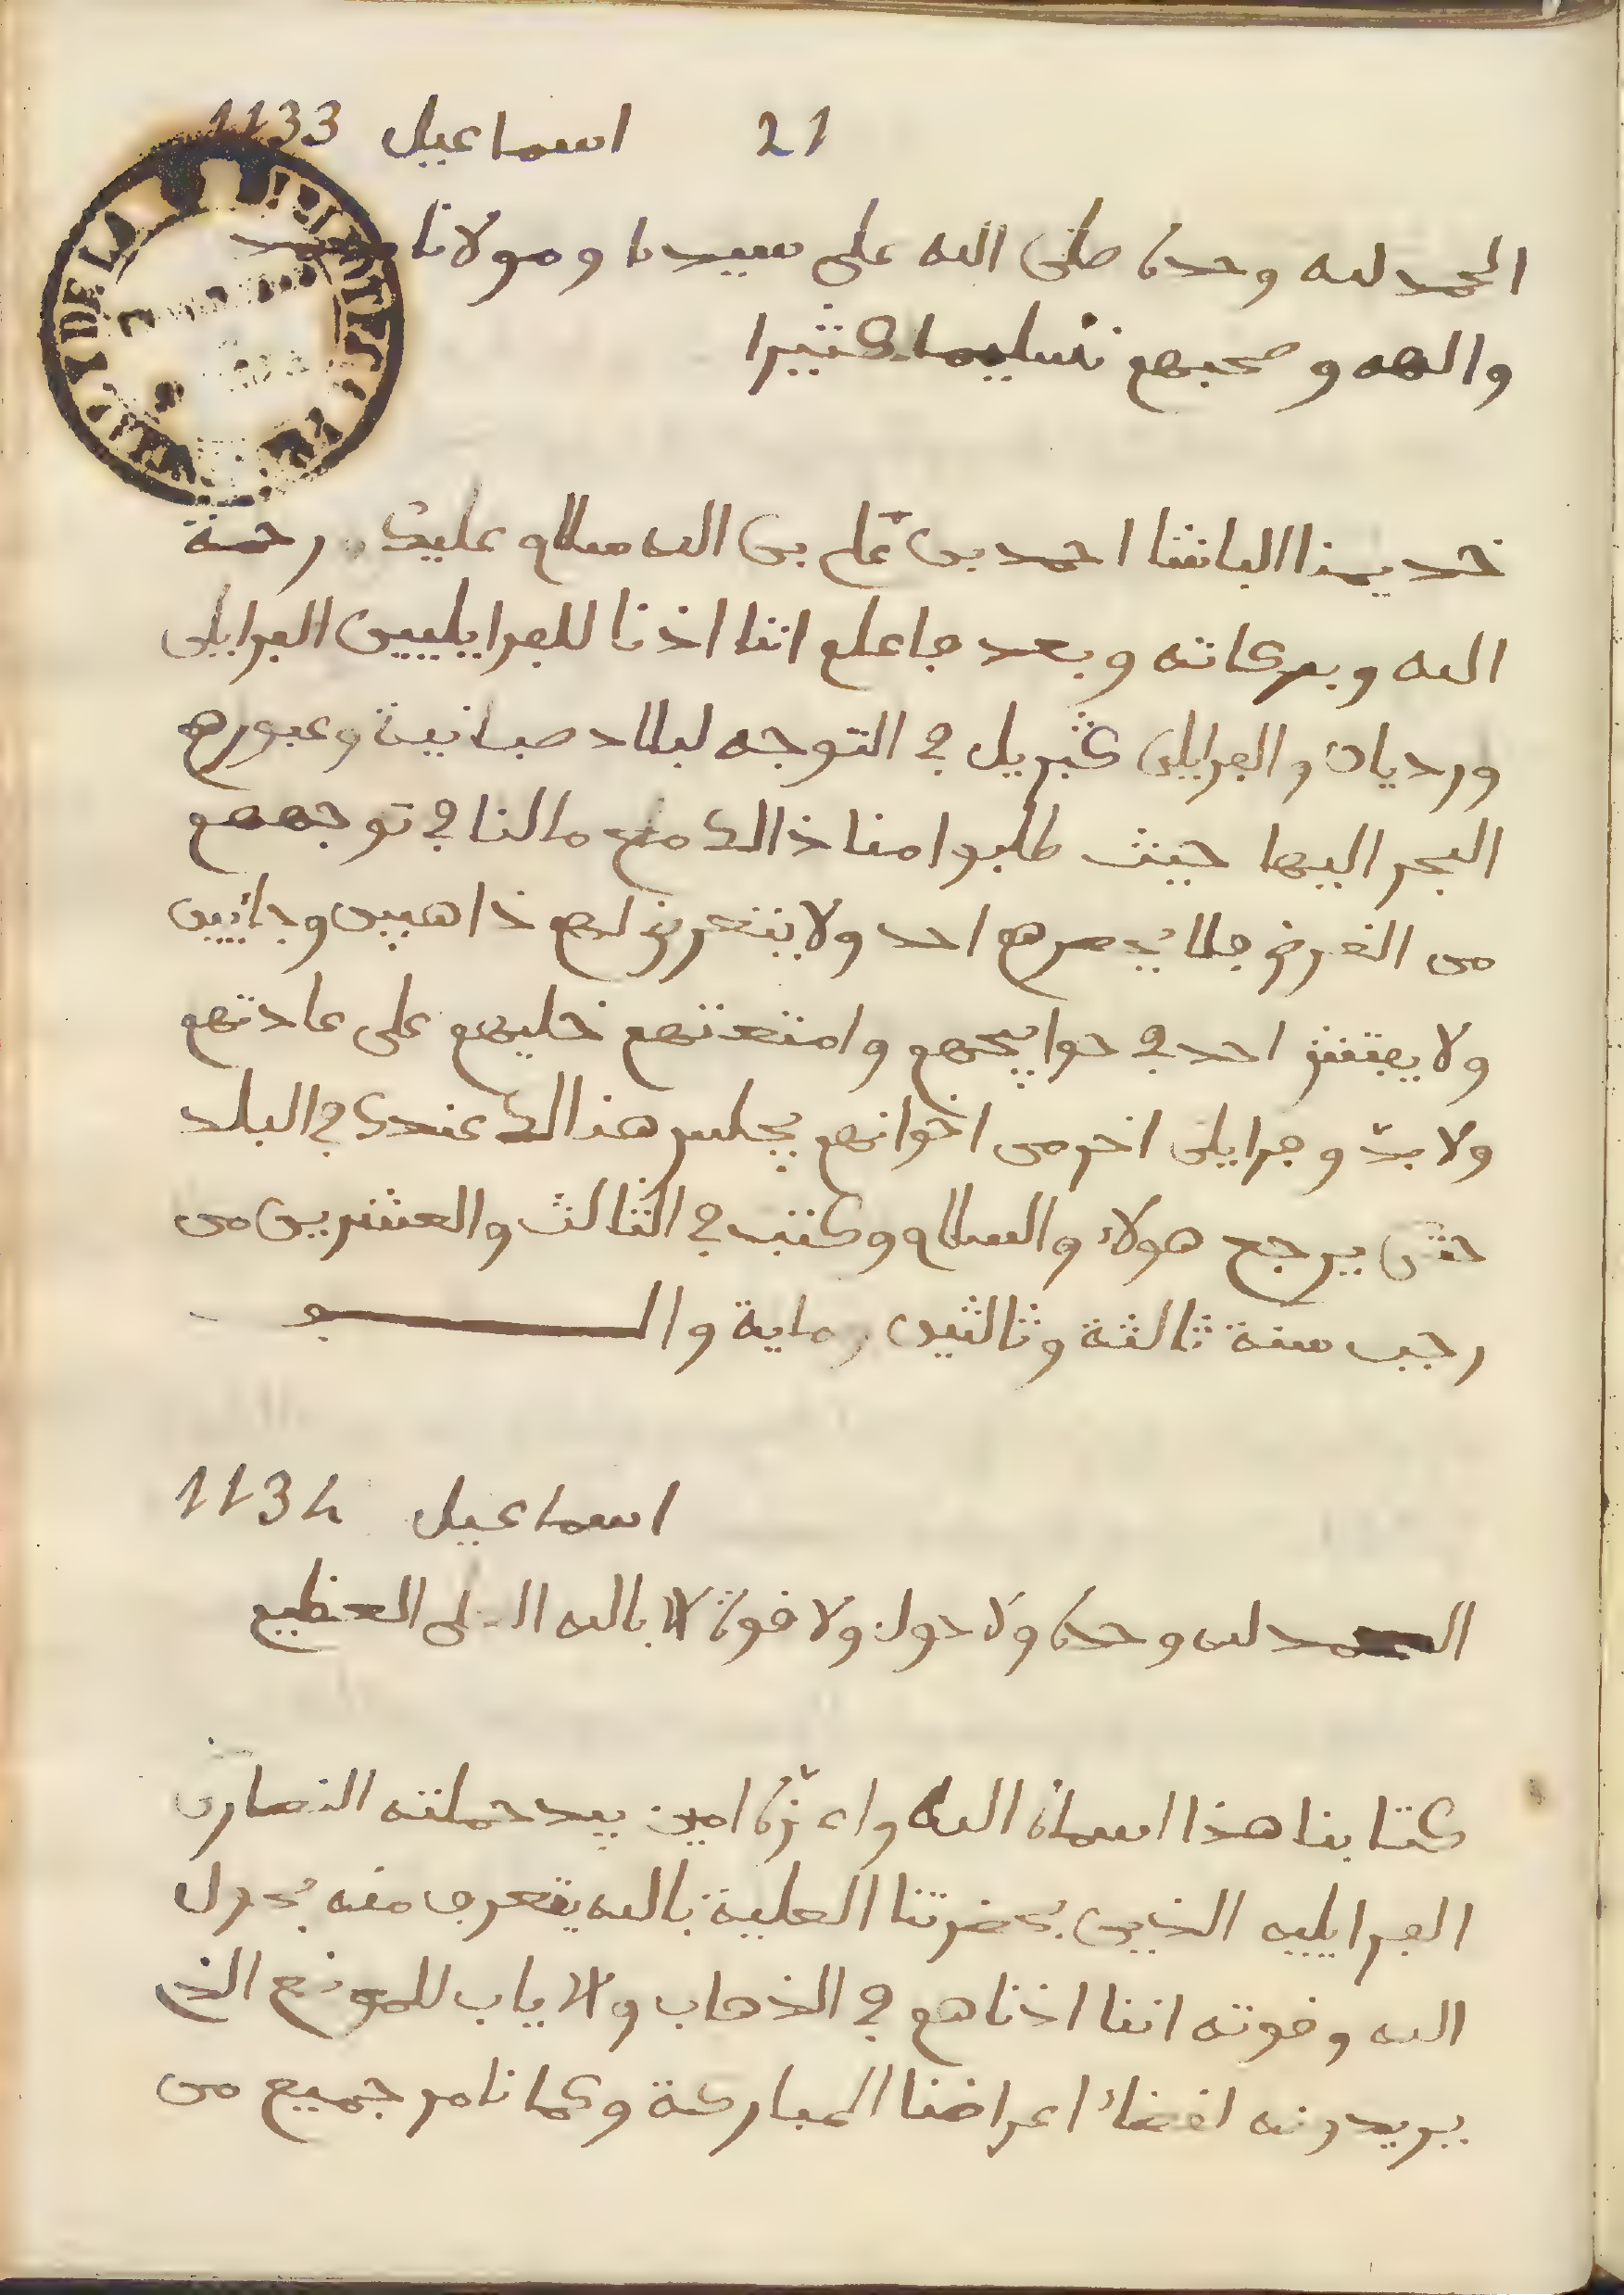 21 اسماعيل 1133
الحمد لله وحده صلى الله على سيدنا ومولانا محمد
والهه وصحبهم تسليما كثيرا
خديمنا الباشا احمد بن علي بن الله سلام عليك رحمة
الله وبركاته وبعد فاعلم اننا اذنا للفرايليين الفرايلى
ورديان والفرايلى كبريل في التوجه لبلاد صبانية وعبورهم
البحر اليها حيث طلبوا منا ذالك مع مالنا في توجههم
من الغرض فلا يحصرهم احد ولا يتعرض لهم ذاهبين وجائيين
ولا يفتش احد في حوايجهم وامتعتهم خليهم على عادتهم
ولا بد وفرايلى اخر من اخوانهم يجلس هنالك عندك في البلد
حتى يرجع هولاء والسلام وكتب في الثالث والعشرين من
رجب سنة ثالثة وثالثين وماية والف
اسماعيل 1134
الحمد لله وحده ولا حول ولا قوة الا بالله العلى العظيم
كتابنا هذا اسماه الله واعزه امين بيد حملته النصارى
الفرايليه الذيين بحضرتنا العلية بالله يتعرف منه بحول
الله وقوته اننا اذناهم في الذهاب والاياب للموضع الذي
يريدونه لقضاء اغراضنا المباركة وكما نامر جميع من